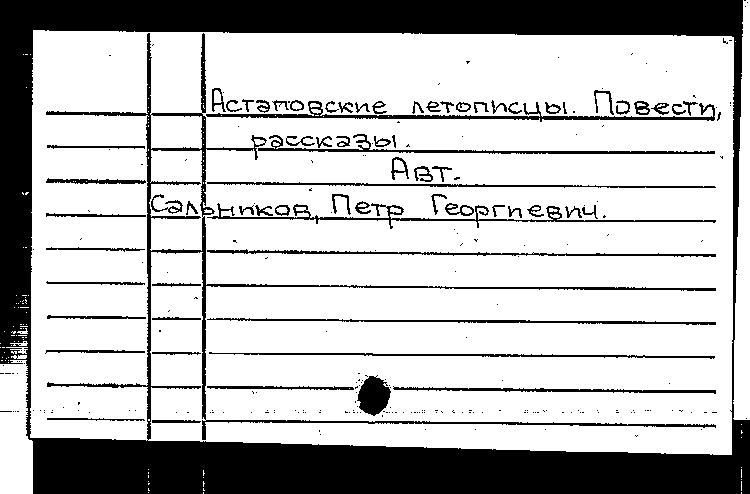 Астаповские летописцы. Повести,
рассказы.
Авт.
Сальников, Петр Георгиевич.